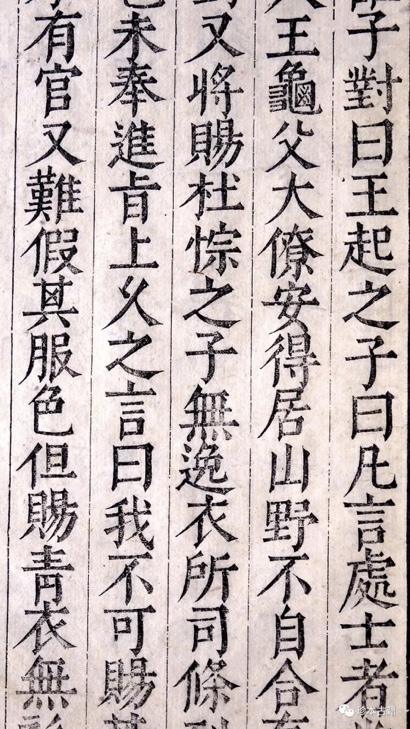 子對曰王起之子曰凡言處士者
王龜父大僚安得居山野不自合
又將賜杜悰之子無逸衣所司條
未奉進旨上久之言曰我不可賜
有官又難假其服色但賜青衣無
珍本古朝